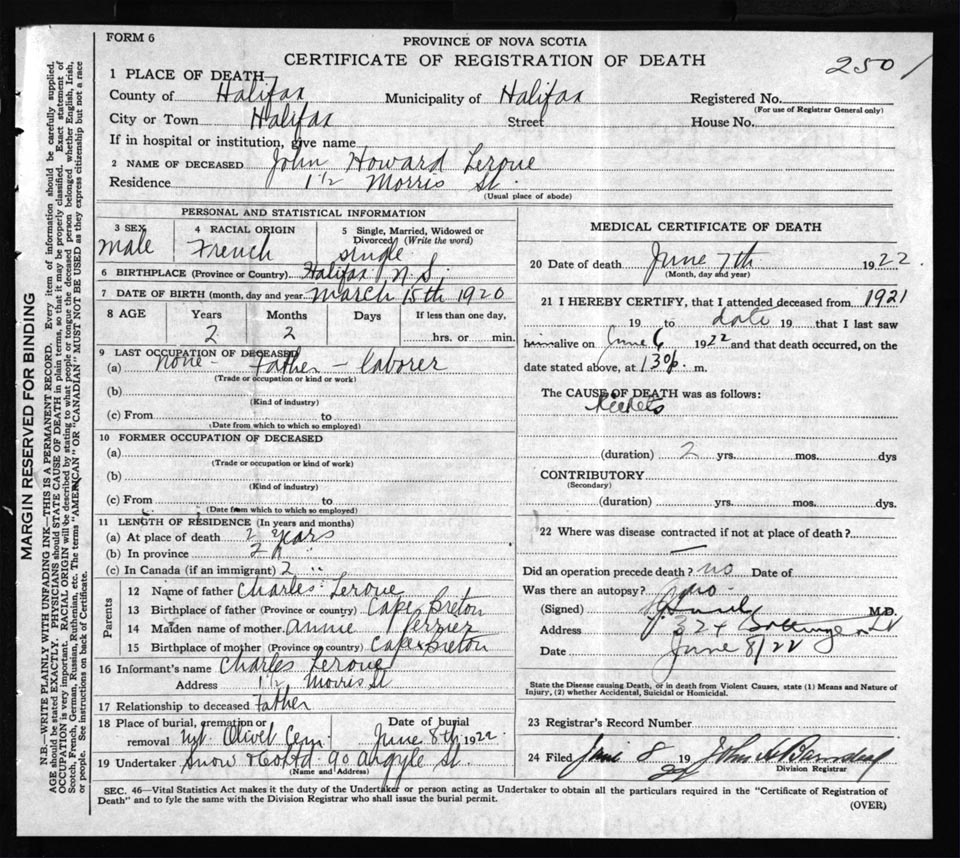 FORM 6
PROVINCE OF NOVA SCOTIA
CERTIFICATE OF REGISTRATION OF DEATH
2501
1 PLACE OF DEATH
County of Halifax Municipality of Halifax Registered No.
(For use of Registrar General only)
City or Town Halifax Street House No.
If in hospital or institution, give name
2 NAME OF DECEASED John Howard Leroue
Residence 1½ Morris St.
(Usual place of abode)
PERSONAL AND STATISTICAL INFORMATION
3 SEX 4 RACIAL ORIGIN 5 Single, Married, Widowed or Divorced (Write the word)
male French single
6 BIRTHPLACE (Province or Country) Halifax N.S.
7 DATE OF BIRTH (month, day and year) March 15th 1920
8 AGE Years Months Days If less than one day,
2 2 hrs. or min.
9 LAST OCCUPATION OF DECEASED
(a) none - Father - laborer
(Trade or occupation or kind or work)
(b)
(Kind of industry)
(c) From to
(Date from which to which so employed)
10 FORMER OCCUPATION OF DECEASED
(a)
(Trade or occupation or kind of work)
(b)
(Kind of industry)
(c) From to
(Date from which to which so employed)
11 LENGTH OF RESIDENCE (In years and months)
(a) At place of death 2 years
(b) In province 2 "
(c) In Canada (if an immigrant) 2 "
Parents
12 Name of father Charles Leroue
13 Birthplace of father (Province or country) Cape Breton
14 Maiden name of mother Annie Perrier
15 Birthplace of mother (Province or country) Cape Breton
16 Informant's name Charles Leroue
Address 1½ Morris St
17 Relationship to deceased Father
18 Place of burial, cremation or removal Mt. Olivet Cem. Date of burial June 8th 1922
19 Undertaker Snow & Co Ltd. 90 Argyle St.
(Name and Address)
MEDICAL CERTIFICATE OF DEATH
20 Date of death June 7th 1922
(Month, day and year)
21 I HEREBY CERTIFY, that I attended deceased from 1921
19 to date 19 that I last saw
him alive on June 6 1922 and that death occurred, on the
date stated above, at 130 p. m.
The CAUSE OF DEATH was as follows:
Rickets
(duration) 2 yrs. mos. dys
CONTRIBUTORY
(Secondary)
(duration) yrs. mos. dys.
22 Where was disease contracted if not at place of death?
Did an operation precede death? no Date of
Was there an autopsy? no
(Signed) M.D.
Address 324
Date June 8/22
State the Disease Causing Death, or in death from Violent Causes, state (1) Means and Nature of
Injury, (2) whether Accidental, Suicidal or Homicidal.
23 Registrar's Record Number
24 Filed June 8 1922 John
Division Registrar
SEC. 46—Vital Statistics Act makes it the duty of the Undertaker or person acting as Undertaker to obtain all the particulars required in the "Certificate of Registration of
Death" and to fyle the same with the Division Registrar who shall issue the burial permit.
(OVER)
MARGIN RESERVED FOR BINDING
N.B.—WRITE PLAINLY WITH UNFADING INK—THIS IS A PERMANENT RECORD. Every item of information should be carefully supplied.
AGE should be stated EXACTLY. PHYSICIANS should STATE CAUSE OF DEATH in plain terms, so that it may be properly classified. Exact statement of
OCCUPATION is very important. RACIAL ORIGIN will be described by stating to what people or tongue the deceased person belonged whether English, Irish,
Scotch, French, German, Russian, Ruthenian, etc. The terms "AMERICAN" OR "CANADIAN" MUST NOT BE USED as they express citizenship but not a race
or people. See instructions on back of Certificate.